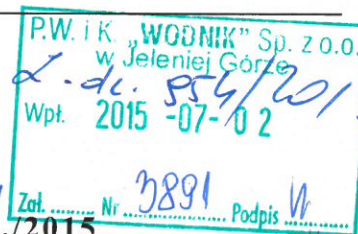 P.W. i K. „WODNIK" Sp. z o.o.
w Jeleniej Górze
L. dz. 954/201
Wpł. 2015 -07- 0 2
Zał. ........ Nr 3891 Podpis
/2015